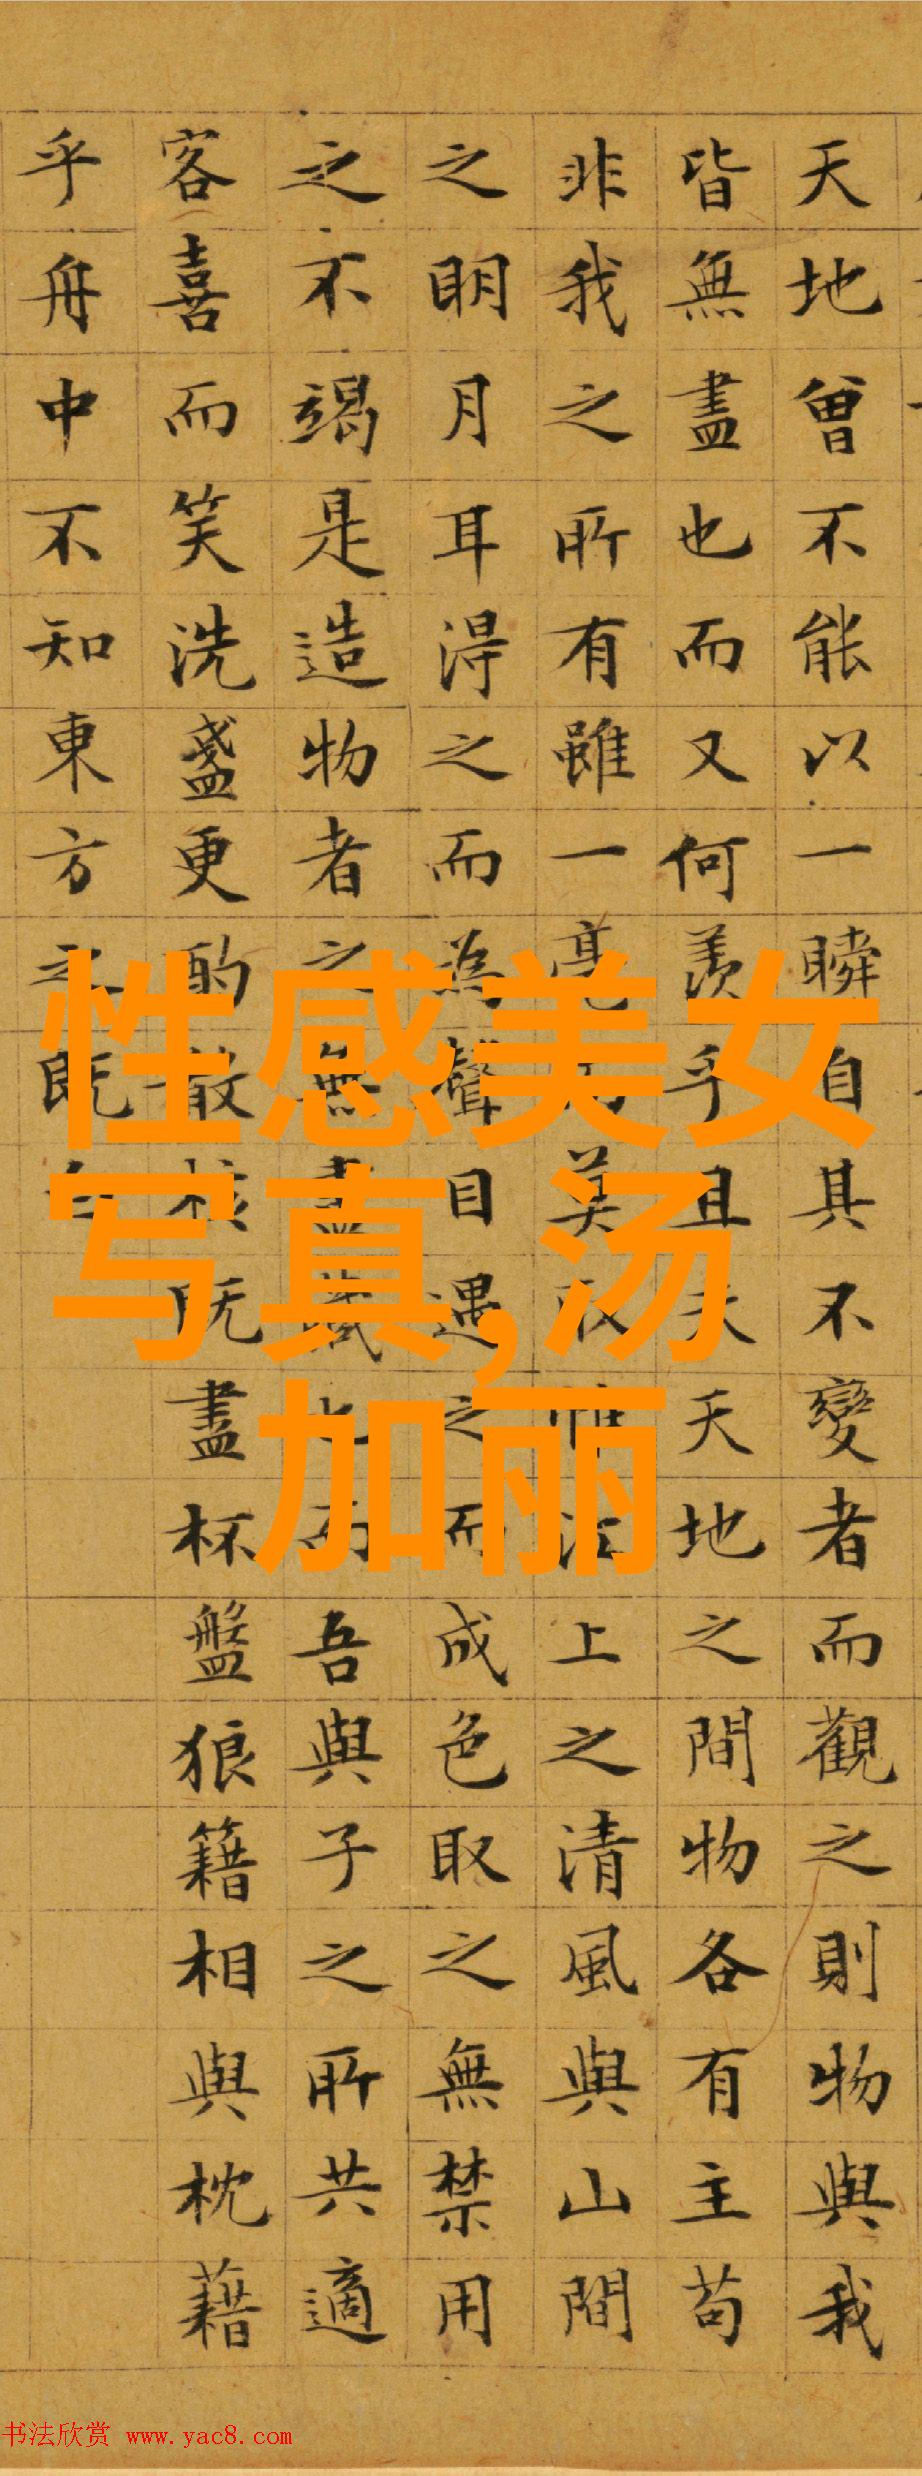 天地曾不能以一瞬自其不變者而觀之則物與我
皆無盡也而又何羨乎且夫天地之間物各有主苟
非我之所有雖一毫而莫取惟江上之清風與山間
之明月耳得之而為聲目遇之而成色取之無禁用
之不竭是造物者之無盡藏也而吾與子之所共適
客喜而笑洗盞更酌核既盡杯盤狼籍相與枕藉
乎舟中不知東方之既白
性感美女
写真,汤
加丽
书法欣赏 www.yac8.com